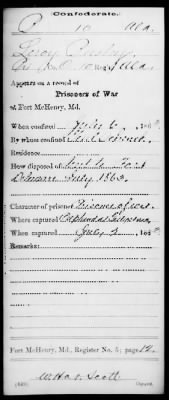 Confederate.
P 10 Ala.
Leroy
Pri, Co. 10 Reg't Ala.
Appears on a record of
Prisoners of War
at Fort McHenry, Md.
When confined July 6, 186
By whom confined
Residence
How disposed of Sent to Fort
Delaware July 1863.
Character of prisoner Prisoner of war
Where captured
When captured July 186
Remarks:
Fort McHenry, Md., Register No. 5; page 12
Scott
Copyist.